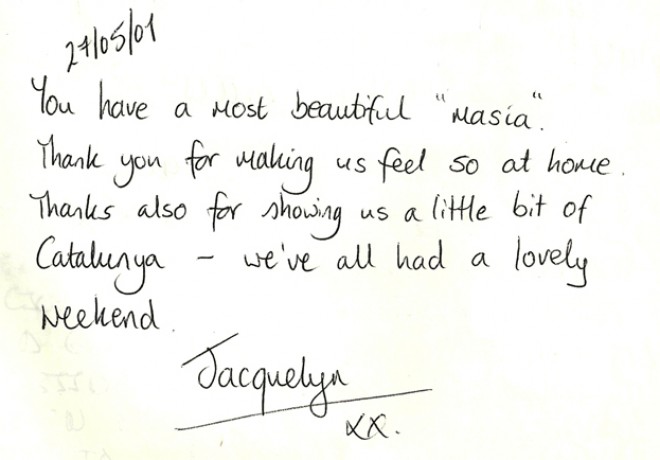 27/05/01
You have a most beautiful "masía".
Thank you for making us feel so at home.
Thanks also for showing us a little bit of
Catalunya – we've all had a lovely
weekend.
Jacquelyn
xx.